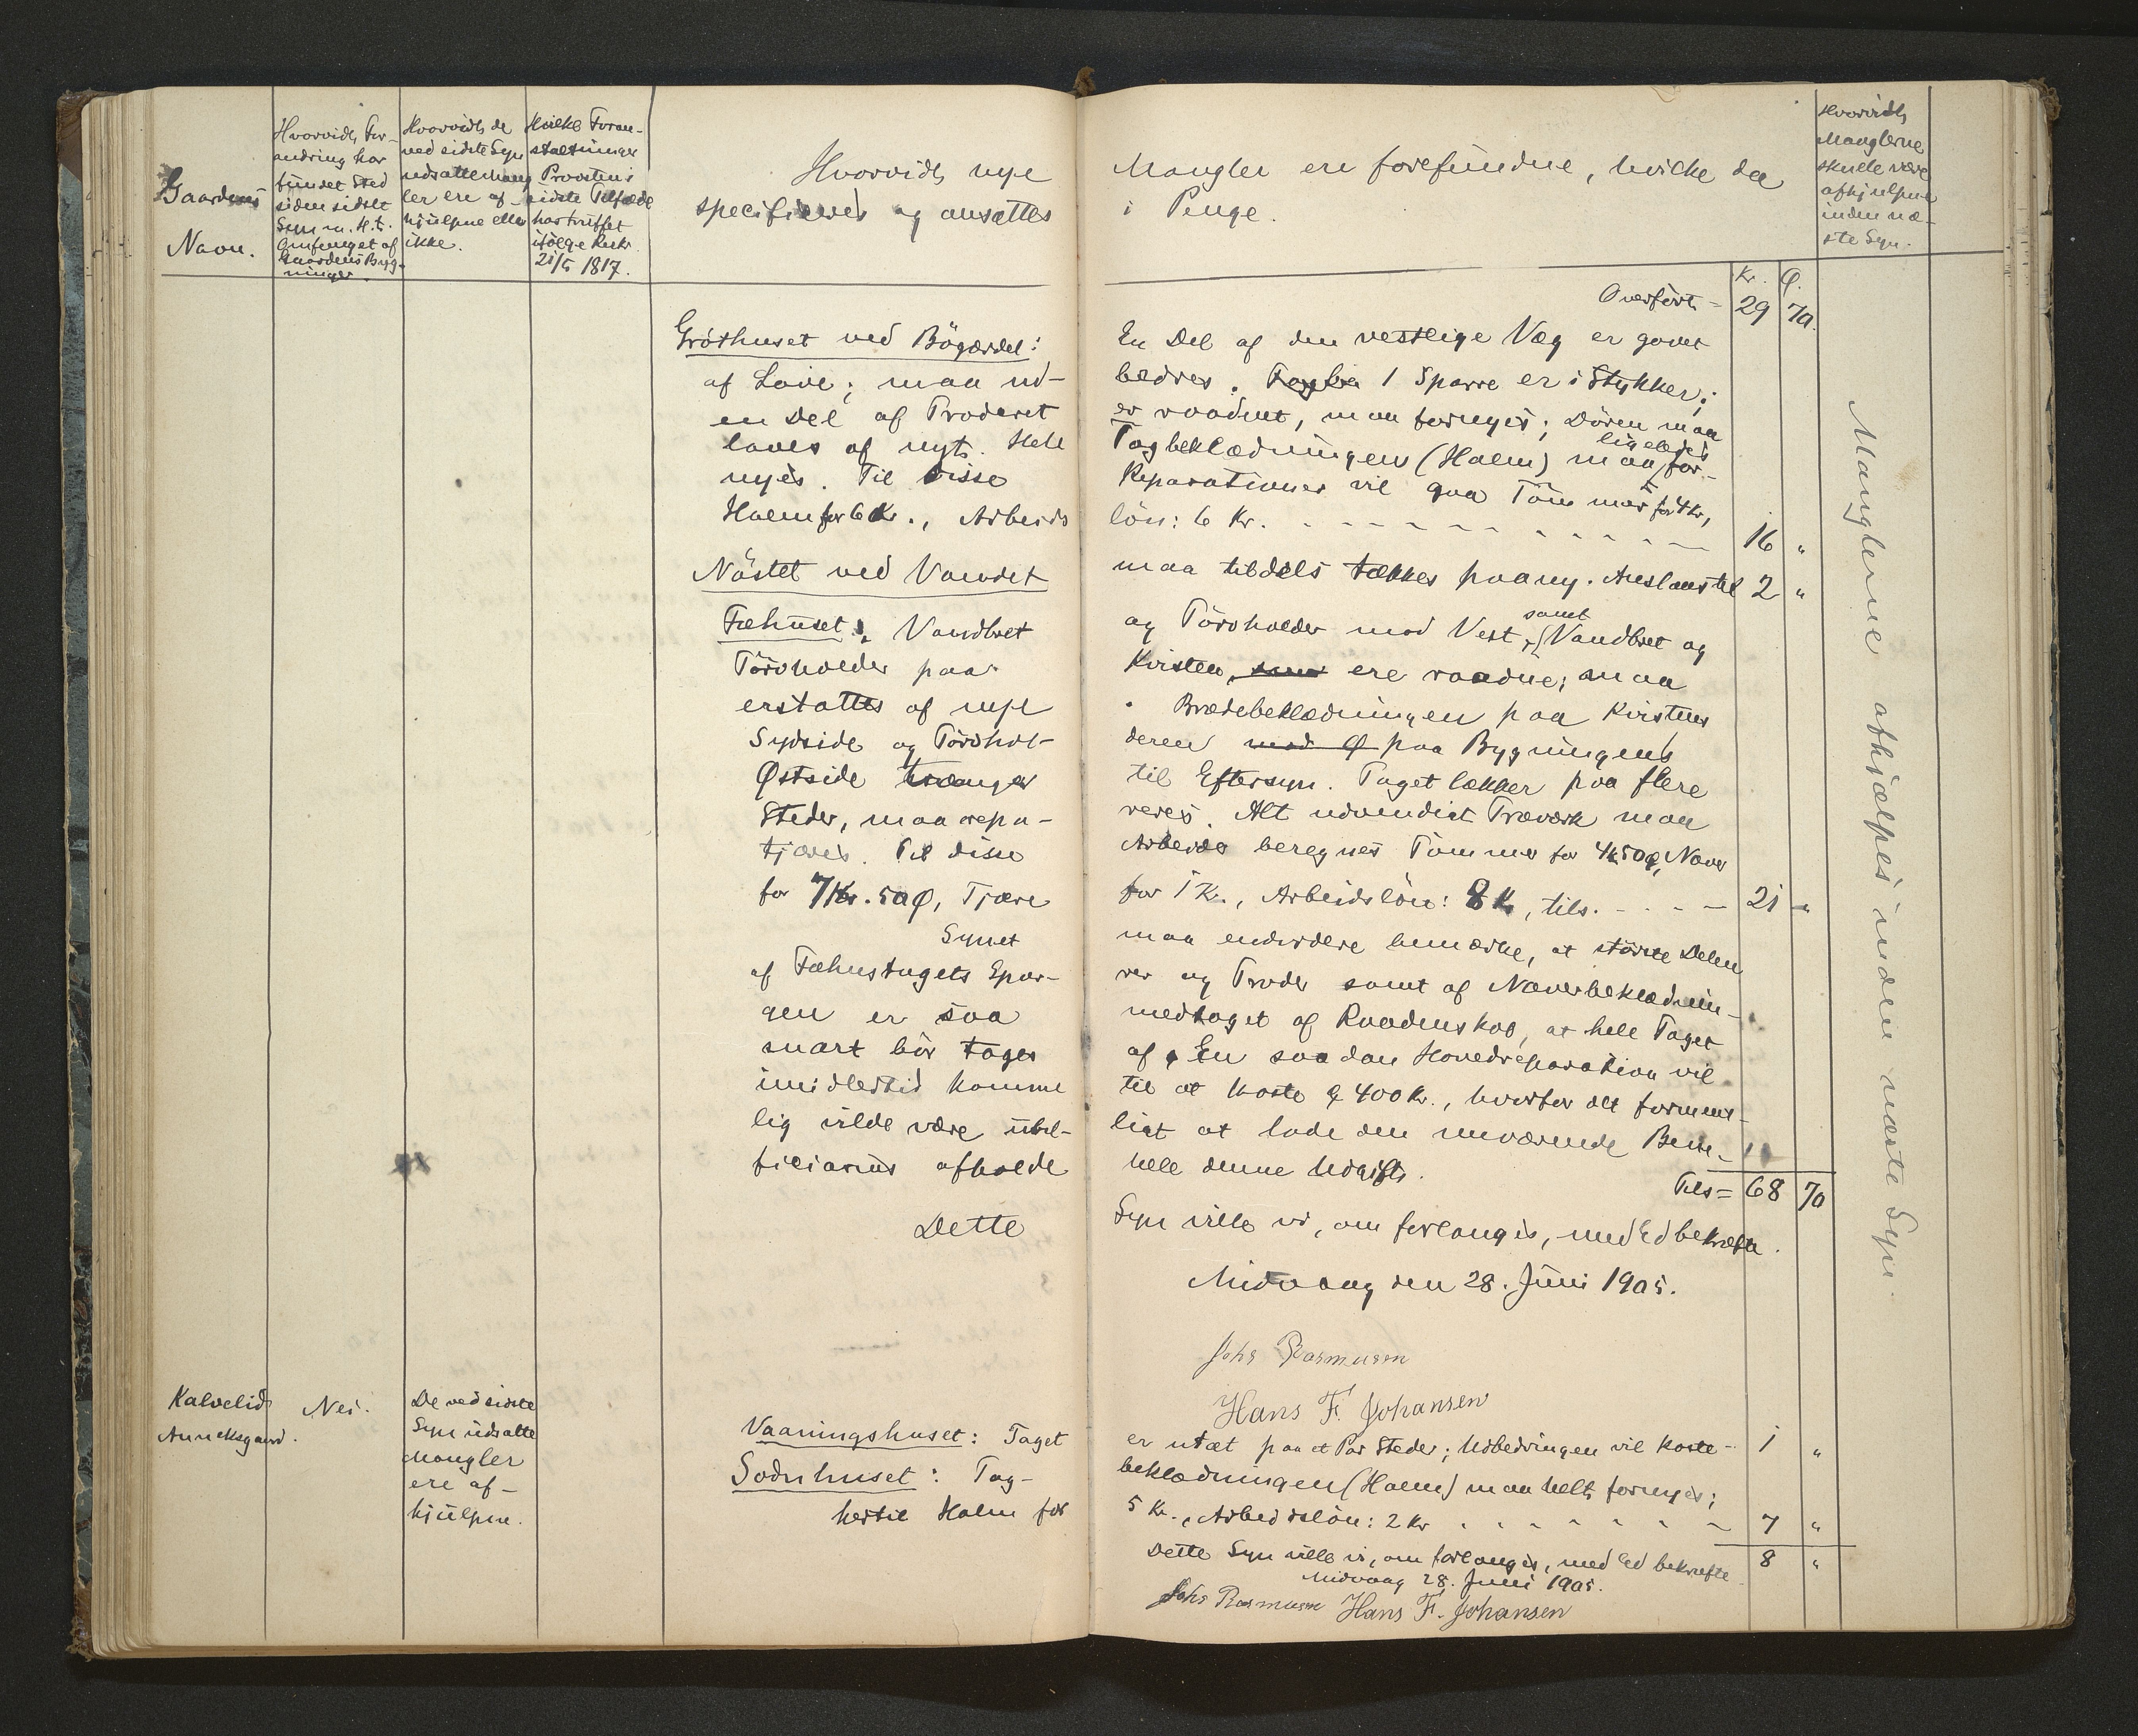 Gaardens
Navn.
Hvorvidt For-
andring har
fundet Sted
siden sidste
Syn m. H. t.
Omfanget af
Gaardens Byg-
ninger.
Hvorvidt de
ved sidste Syn
udsatte Mang
ler ere af-
hjulpne eller
ikke.
Hvilke Foran-
staltninger
Provsten i
sidste Tilfælde
har truffet
ifölge Reskr.
21/5 1817.
Hvorvidt nye Mangler ere forefundne, hvilke da
specificeres og ansættes i Penge.
Hvorvidt
Manglerne
skulle være
afhjulpne
inden næ-
ste Syn.
Kr. Ø.
Overført - 29 70.
Gróthuset ved Bögærdet: En Del af den vestlige Væg er gaaet
af Lave; maa ud- bedres. 1 Sparre er i Stykker;
en Del af Troderet er raadnet, maa fornyes; Dören maa
laves af nyt. Hele Tagbeklædningen (Halm) maa ligeledes for-
nyes. Til disse Reparationer vil gaa Tömmer for 4 Kr.,
Halm for 6 Kr., Arbeids lön: 6 Kr. - - - 16 "
Nöstet ved Vandet maa tildels tækkes paany. Anslaaes til 2 "
Fæhuset: Vandbret og Törvholder mod Vest, samt Vandbret og
Törvholder paa Kvisten, ere raadne; maa
erstattes af nye. Brædebeklædningen paa Kvistens
Sydside og Törvhol- deren paa Bygningens
Østside trænger til Eftersyn. Taget lækker paa flere
Steder, maa repa- reres. Alt udvendigt Træværk maa
tjæres. Til disse Arbeider beregnes Tömmer for 4 Kr 50 Ø, Næver
for 7 Kr. 50 Ø, Tjære for 1 Kr., Arbeidslön: 8 Kr, tils. - - - 21 "
Synet maa endvidere bemærke, at störste Delen
af Fæhustagets Spar- rer og Troder samt af Næverbeklædnin-
gen er saa medtaget af Raadenskab, at hele Taget
snart bör tages af. En saadan Hovedreparation vil
imidlertid komme til at koste c. 400 Kr., hvorfor det forment-
lig vilde være ubil- ligt at lade den nuværende Bene-
ficiarius afholde hele denne Udgift.
Tils = 68 70
Dette Syn ville vi, om forlanges, med Ed bekræfte.
Midvaag den 28. Juni 1905.
Johs Rasmusen
Hans F. Johansen
Manglerne afhjælpes inden næste Syn.
Kalvelid
Anneksgaard.
Nei.
De ved sidste
Syn udsatte
Mangler
ere af-
hjulpne.
Vaaningshuset: Taget er utæt paa et Par Steder; Udbedringen vil koste - 1 "
Sodnhuset: Tag- beklædningen (Halm) maa helt fornyes;
hertil Halm for 5 Kr., Arbeidslön: 2 Kr - - - 7 "
8 "
Dette Syn ville vi, om forlanges, med Ed bekræfte
Midvaag 28. Juni 1905.
Johs Rasmusen Hans F. Johansen